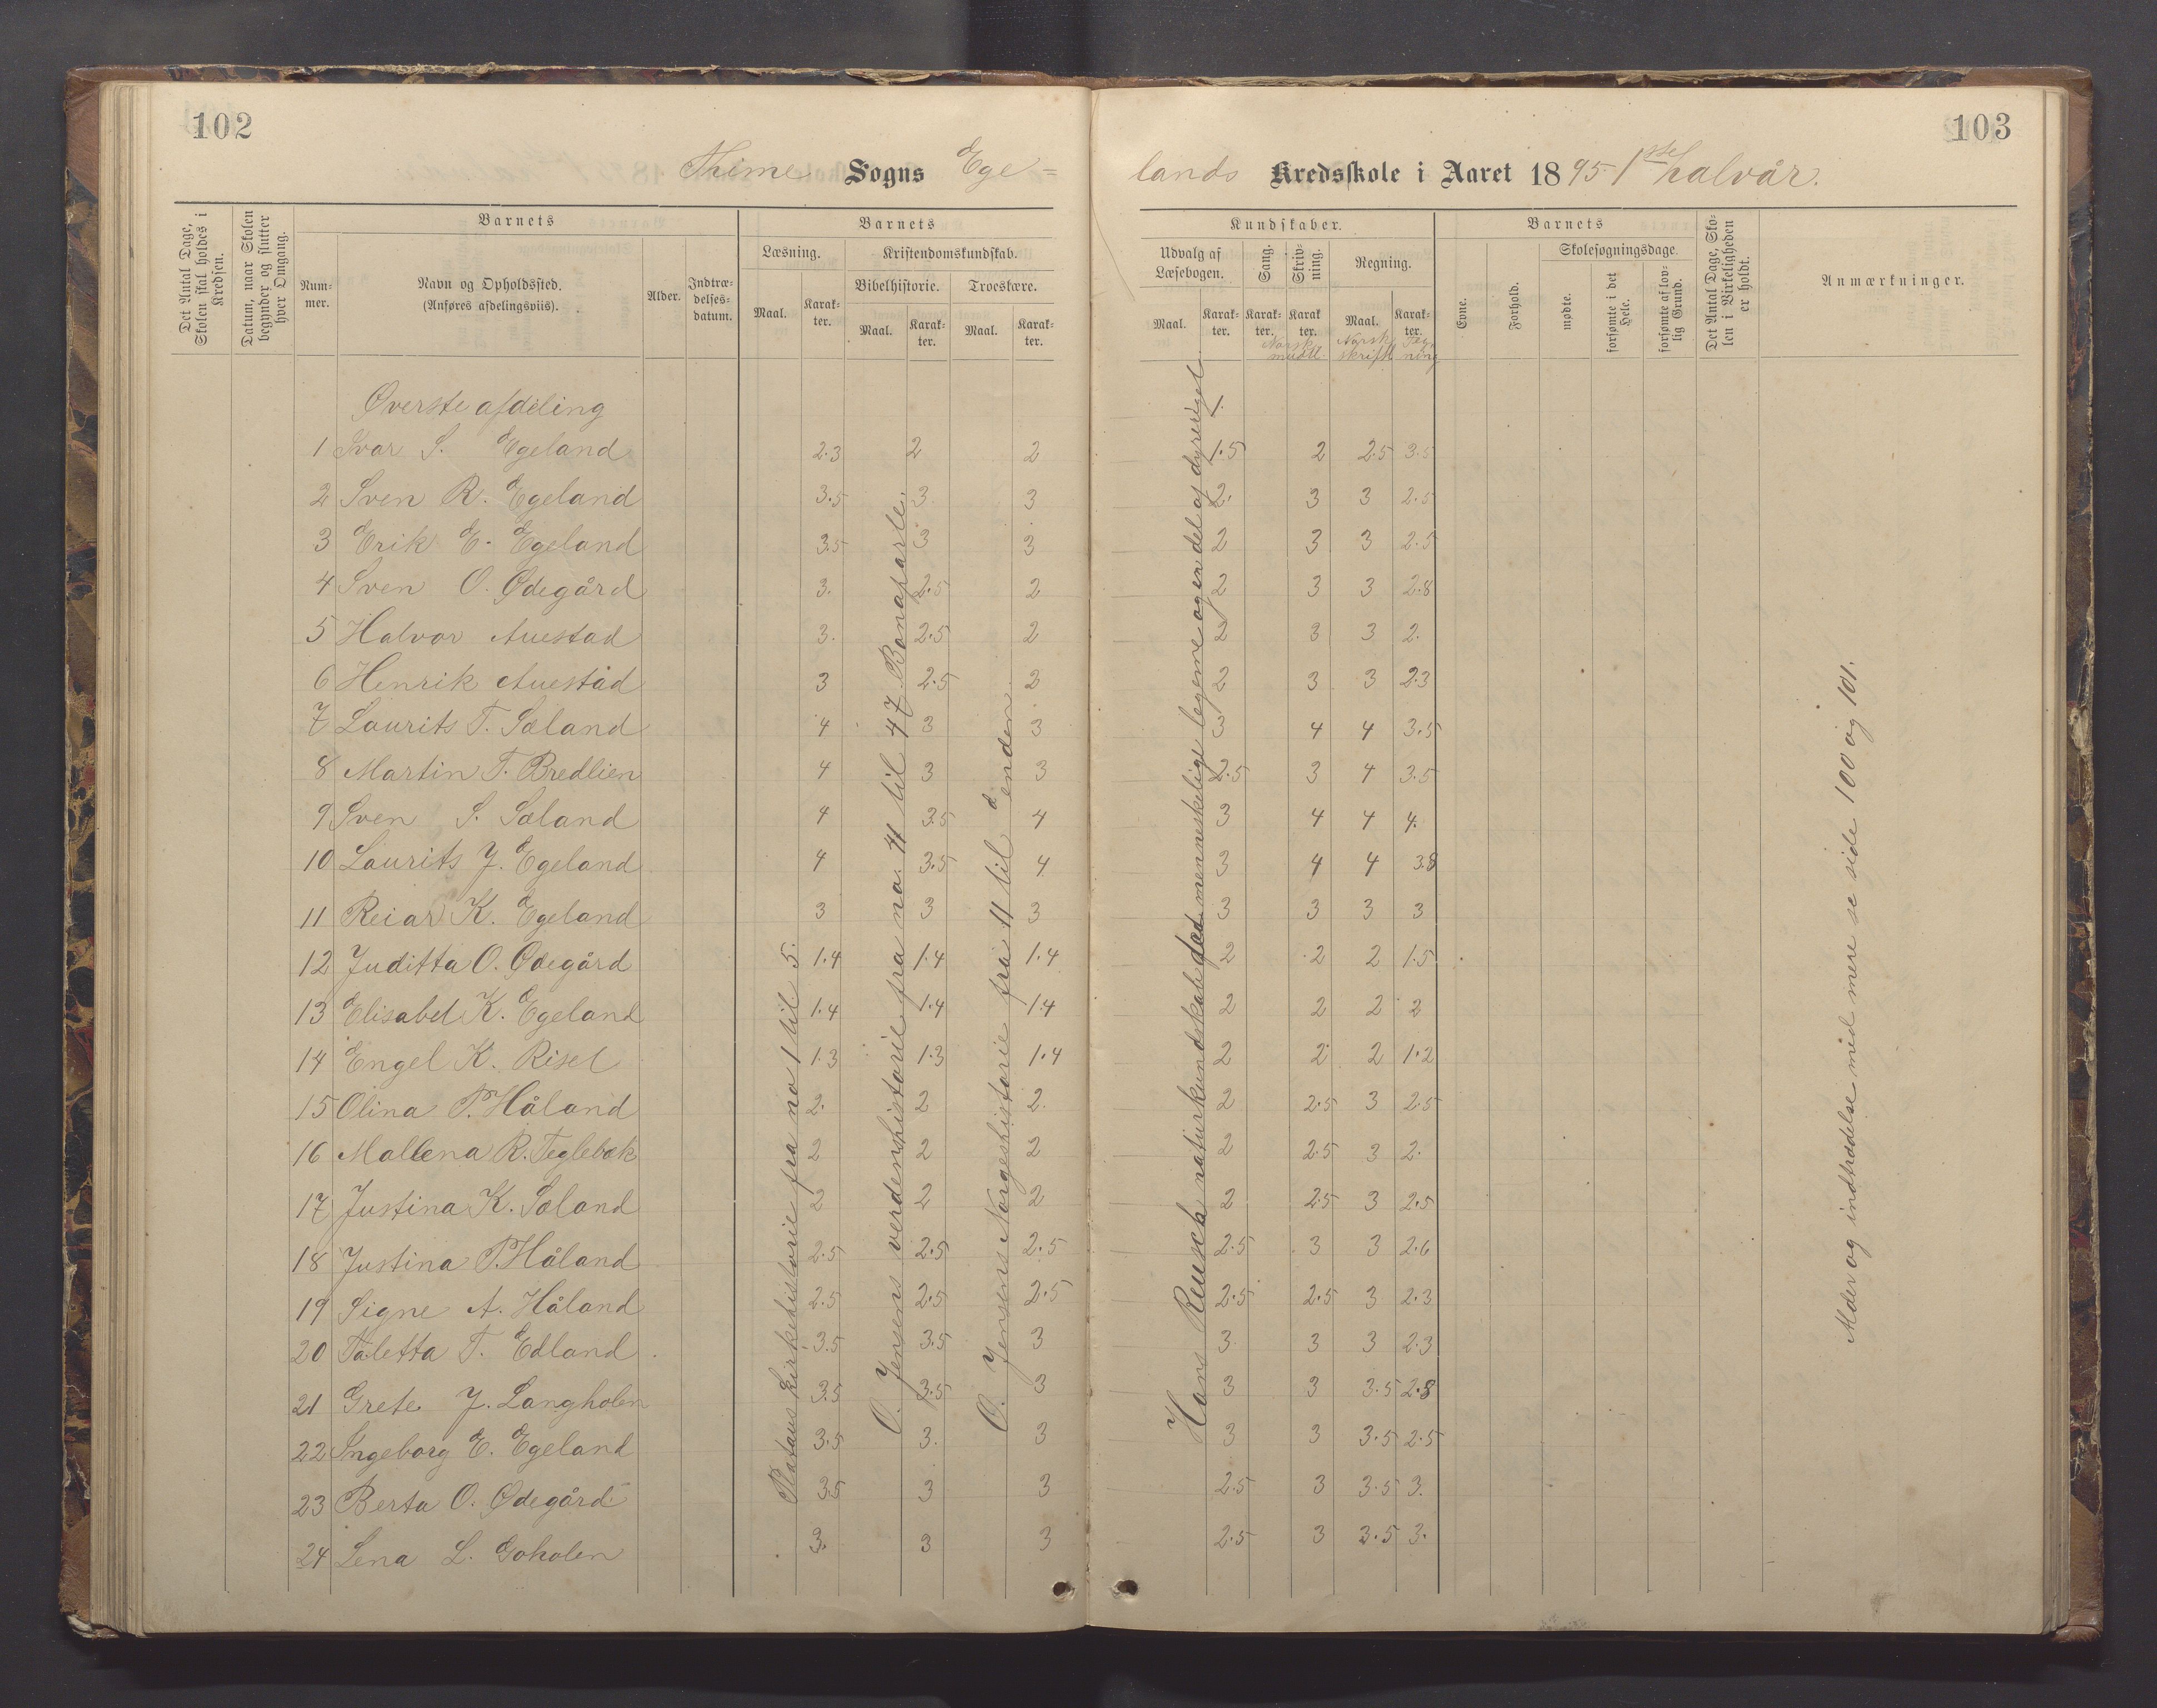 102
103
Thime Sogns Ege=
lands Kredsskole i Aaret 1895 1ste halvår.
Det Antal Dage, Skolen skal holdes i Kredsen.
Datum, naar Skolen begynder og slutter hver Omgang.
Barnets
Nummer.
Navn og Opholdssted.
(Anføres afdelingsviis).
Alder.
Indtrædelses-datum.
Barnets
Læsning.
Maal.
Karakter.
Kristendomskundskab.
Bibelhistorie.
Maal.
Karakter.
Troeslære.
Maal.
Karakter.
Kundskaber.
Udvalg af Læsebogen.
Maal.
Karakter.
Sang.
Karakter.
Skrivning.
Karakter.
Norsk mundtl.
Regning.
Maal.
Norsk skriftl
Karakter.
Tegning
Barnets
Evne.
Forhold.
Skolesøgningsdage.
mødte.
forsømte i det Hele.
forsømte af lovlig Grund.
Det Antal Dage, Skolen i Virkeligheden er holdt.
Anmærkninger.
Øverste afdeling 1.
1 Ivar S. Egeland 2.3 2 2 1.5 2 2.5 3.5
2 Sven R. Egeland 3.5 3 3 2. 3 3 2.5
3 Erik E. Egeland 3.5 3 3 2 3 3 2.5
4 Sven O. Ødegård 3. 2.5 2 2 3 3 2.8
5 Halvor Auestad 3. 2.5 2 2 3 3 2.
6 Henrik Auestad 3 2.5 2 2 3 3 2.3
7 Laurits T. Sæland 4 3 3 3 4 4 3.5
8 Martin T. Bredlien 4 3 3 2.5 3 4 3.5
9 Sven S. Sæland 4 3.5 4 3 4 4 4.
10 Laurits J. Egeland 4 3.5 4 3 4 4 3.8
11 Reiar K. Egeland 3 3 3 3 3 3 3
12 Juditta O. Ødegård 1.4 1.4 1.4 2 2 2 1.5
13 Elisabet K. Egeland 1.4 1.4 1.4 2 2 2 2
14 Engel K. Risel 1.3 1.3 1.4 2 2 2 1.2
15 Olina P. Håland 2. 2 2. 2 2.5 3 2.5
16 Mallena R. Teglebæk 2 2 2 2 2.5 3 2.
17 Justina K. Sæland 2 2 2 2 2.5 3 2.5
18 Justina P. Håland 2.5 2.5 2.5 2.5 3 3 2.6
19 Signe A. Håland 2.5 2.5 2.5 2.5 2.5 3 2.3
20 Taletta T. Edland 3.5 3.5 3 3 3 3 2.3
21 Grete J. Langholen 3.5 3.5 3 3 3 3.5 2.8
22 Ingeborg E. Egeland 3.5 3. 3 3 3 3.5 2.5
23 Berta O. Ødegård 3.5 3 3 2.5 3 3.5 3.
24 Lena L. Goholen 3. 3 3 2.5 3 3.5 3.
kirkehistorie fra no 1 til 5.
O. Jensens verdenshistorie fra no. 41 til 47 Bonaparte.
O. Jensens Norgeshistorie fra 11 til enden
Hans Reusch naturkundskab det menneskelige legeme og en del af dyreriget
Alder og indtrædelse med mere se side 100 og 101.